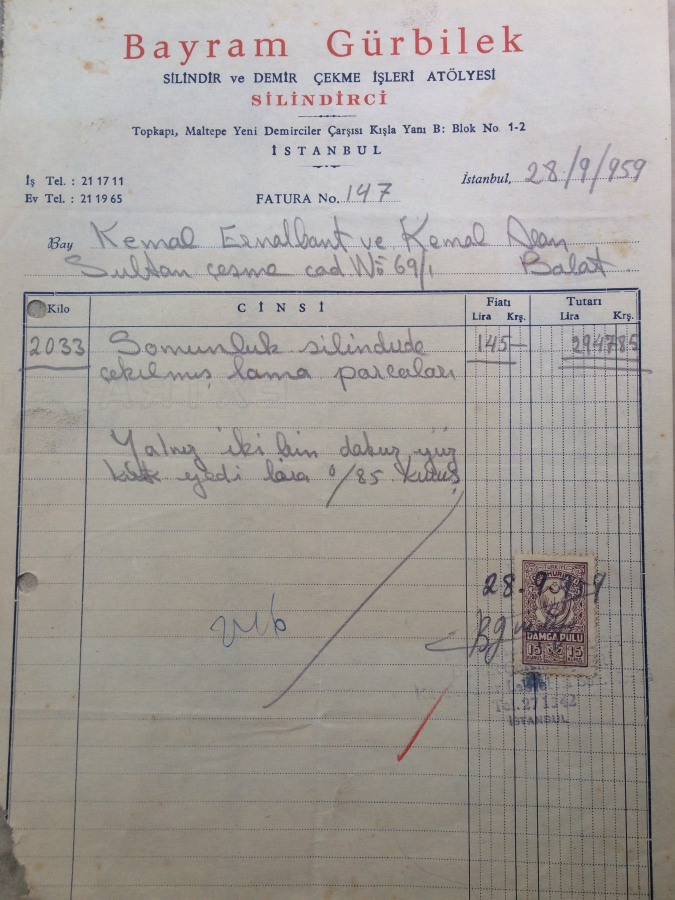 Bayram Gürbilek
SİLİNDİR ve DEMİR ÇEKME İŞLERİ ATÖLYESİ
SİLİNDİRCİ
Topkapı, Maltepe Yeni Demirciler Çarşısı Kışla Yanı B: Blok No. 1-2
İSTANBUL
İş Tel. : 21 17 11
Ev Tel. : 21 19 65
FATURA No. 147
İstanbul, 28/9/959
Bay Kemal ve Kemal
Sultan çeşme cad No 69/1 Balat
Kilo CİNSİ Fiatı Tutarı
Lira Krş. Lira Krş.
2033 Somunluk silindide 145 — 2947 85
çekilmiş lama parçaları
Yalnız iki bin dokuz yüz
kırk yedi lira 85 kuruş
28.9.959
DAMGA PULU
15 15
Tel. 27
İSTANBUL